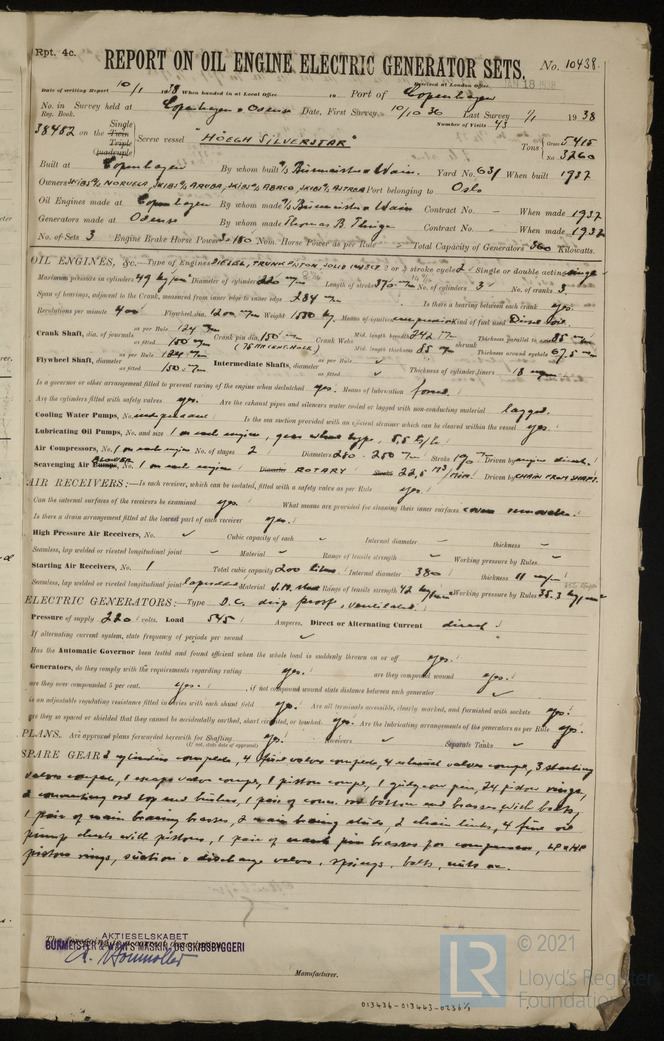 Rpt. 4c.
REPORT ON OIL ENGINE ELECTRIC GENERATOR SETS.
No. 10438.
Received at London Office JAN 18 1938
Date of writing Report 10/1 1938 When handed in at Local Office 19 Port of Copenhagen
No. in Survey held at Copenhagen & Odense Date, First Survey 10/10 36 Last Survey 7/1 1938
Reg. Book. Number of Visits 43
38482 on the Single Twin Triple Quadruple Screw vessel "HÖEGH SILVERSTAR" Tons Gross 5415 Net 3260
Built at Copenhagen By whom built A/S Burmeister & Wain. Yard No. 631 When built 1937
Owners SKIBS A/S NORUEGA, SKIBS A/S ARUBA, SKIBS A/S ABACO, SKIBS A/S ASTREA Port belonging to Oslo
Oil Engines made at Copenhagen By whom made A/S Burmeister & Wain Contract No. - When made 1937
Generators made at Odense By whom made Thomas B. Thrige Contract No. - When made 1937
No. of Sets 3 Engine Brake Horse Power 3×180 Nom. Horse Power as per Rule Total Capacity of Generators 360 Kilowatts.
OIL ENGINES, &c. Type of Engines DIESEL, TRUNK PISTON, SOLID INJECT. 2 or 4 stroke cycle 2 Single or double acting single
Maximum pressure in cylinders 49 kg/cm² Diameter of cylinders 220 m/m Length of stroke 370 m/m No. of cylinders 3 No. of cranks 3
Span of bearings, adjacent to the Crank, measured from inner edge to inner edge 284 m/m Is there a bearing between each crank yes.
Revolutions per minute 400 Flywheel dia. 1200 m/m Weight 1550 kg. Means of ignition compression Kind of fuel used Diesel oil.
Crank Shaft, dia. of journals as per Rule 124 m/m as fitted 150 m/m Crank pin dia. 150 m/m Crank Webs Mid. length breadth 242 m/m Mid. length thickness 85 m/m Thickness parallel to axis 85 m/m shrunk Thickness around eyehole 67,5 m/m
Flywheel Shaft, diameter as per Rule 124 m/m as fitted 150 m/m Intermediate Shafts, diameter as per Rule ✓ as fitted ✓ Thickness of cylinder liners 18 m/m
Is a governor or other arrangement fitted to prevent racing of the engine when declutched yes. Means of lubrication forced.
Are the cylinders fitted with safety valves yes. Are the exhaust pipes and silencers water cooled or lagged with non-conducting material lagged.
Cooling Water Pumps, No. independent Is the sea suction provided with an efficient strainer which can be cleared within the vessel yes.
Lubricating Oil Pumps, No. and size 1 on each engine, gear wheel type, 5,5 t/h.
Air Compressors, No. 1 on each engine No. of stages 2 Diameters 280 - 250 m/m Stroke 190 m/m Driven by engine direct.
Scavenging Air BLOWER Pumps, No. 1 on each engine. Diameter ROTARY Stroke 22,5 m³/min. Driven by CHAIN FROM SHAFT.
AIR RECEIVERS:—Is each receiver, which can be isolated, fitted with a safety valve as per Rule yes.
Can the internal surfaces of the receivers be examined yes. What means are provided for cleaning their inner surfaces cover removable.
Is there a drain arrangement fitted at the lowest part of each receiver yes.
High Pressure Air Receivers, No. ✓ Cubic capacity of each ✓ Internal diameter ✓ thickness ✓
Seamless, lap welded or riveted longitudinal joint ✓ Material ✓ Range of tensile strength ✓ Working pressure by Rules ✓
Starting Air Receivers, No. 1 Total cubic capacity 200 litres Internal diameter 380 thickness 11 m/m
Seamless, lap welded or riveted longitudinal joint lapwelded Material S.M. steel Range of tensile strength 42 kg/mm² Working pressure by Rules 35.3 kg/cm²
ELECTRIC GENERATORS:—Type D.C. drip proof, ventilated.
Pressure of supply 220 volts. Load 545 Amperes. Direct or Alternating Current direct
If alternating current, state frequency of periods per second ✓
Has the Automatic Governor been tested and found efficient when the whole load is suddenly thrown on or off yes.
Generators, do they comply with the requirements regarding rating yes. are they compound wound yes.
are they over compounded 5 per cent. yes. , if not compound wound state distance between each generator ✓
is an adjustable regulating resistance fitted in series with each shunt field yes. Are all terminals accessible, clearly marked, and furnished with sockets yes.
are they so spaced or shielded that they cannot be accidentally earthed, short circuited, or touched. yes. Are the lubricating arrangements of the generators as per Rule yes.
PLANS. Are approved plans forwarded herewith for Shafting yes. Receivers ✓ Separate Tanks ✓
(If not, state date of approval)
SPARE GEAR 2 cylinders complete, 4 fuel valves complete, 4 exhaust valves compl., 3 starting
valves compl., 1 escape valve compl., 1 piston compl., 1 gudgeon pin, 24 piston rings,
2 connecting rod top end bushes, 1 pair of conn. rod bottom end brasses with bolts,
1 pair of main bearing brasses, 2 main bearing studs, 2 chain links, 4 fuel oil
pump with pistons, 1 pair of crank pin brasses for compressor, LP & HP
piston rings, suction & discharge valves, springs, bolts, nuts etc.
The foregoing is a correct description,
AKTIESELSKABET
BURMEISTER & WAIN'S MASKIN- OG SKIBSBYGGERI
Manufacturer.
013436-013443-0236 1/2
LR
© 2021
Lloyd's Register
Foundation